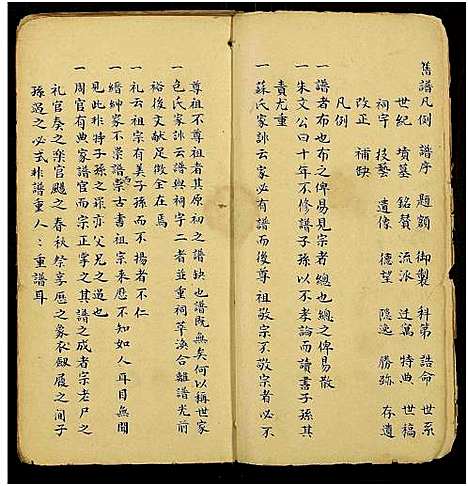 舊譜凡例 譜序 題額 御製 科第 誥命 世系
世紀 墳墓 銘贊 流派 遷寓 特典 世稿
祠宇 技藝 遺像 德望 隱逸 勝弥 存遺
改正 補缺
凡例
一譜者布也布之俾易見宗者總也總之俾易散
一朱文公曰十年不修譜子孫以不孝論而讀書子孫其
責尤重
一蘇氏家訓云家必有譜而後尊祖敬宗不敬宗者必不
尊祖不尊祖者其原初之譜缺也譜既無矣何以稱世家
一色氏家訓云譜與祠宇二者並重祠萃渙合離譜光前
裕後文献足徵全在焉
一礼云祖宗有美子孫而不揚者不仁
一縉紳家不崇譜崇古書祖宗來歷不知如人耳目無聞
見此非特子孫之琢亦父兄之過也
一周官有典家譜官而宗正掌之其譜之成者宗老尸之
礼官奏之樂官颺之春秋祭享歷之象衣劔履之间子
孫過之必式非譜重人：重譜耳